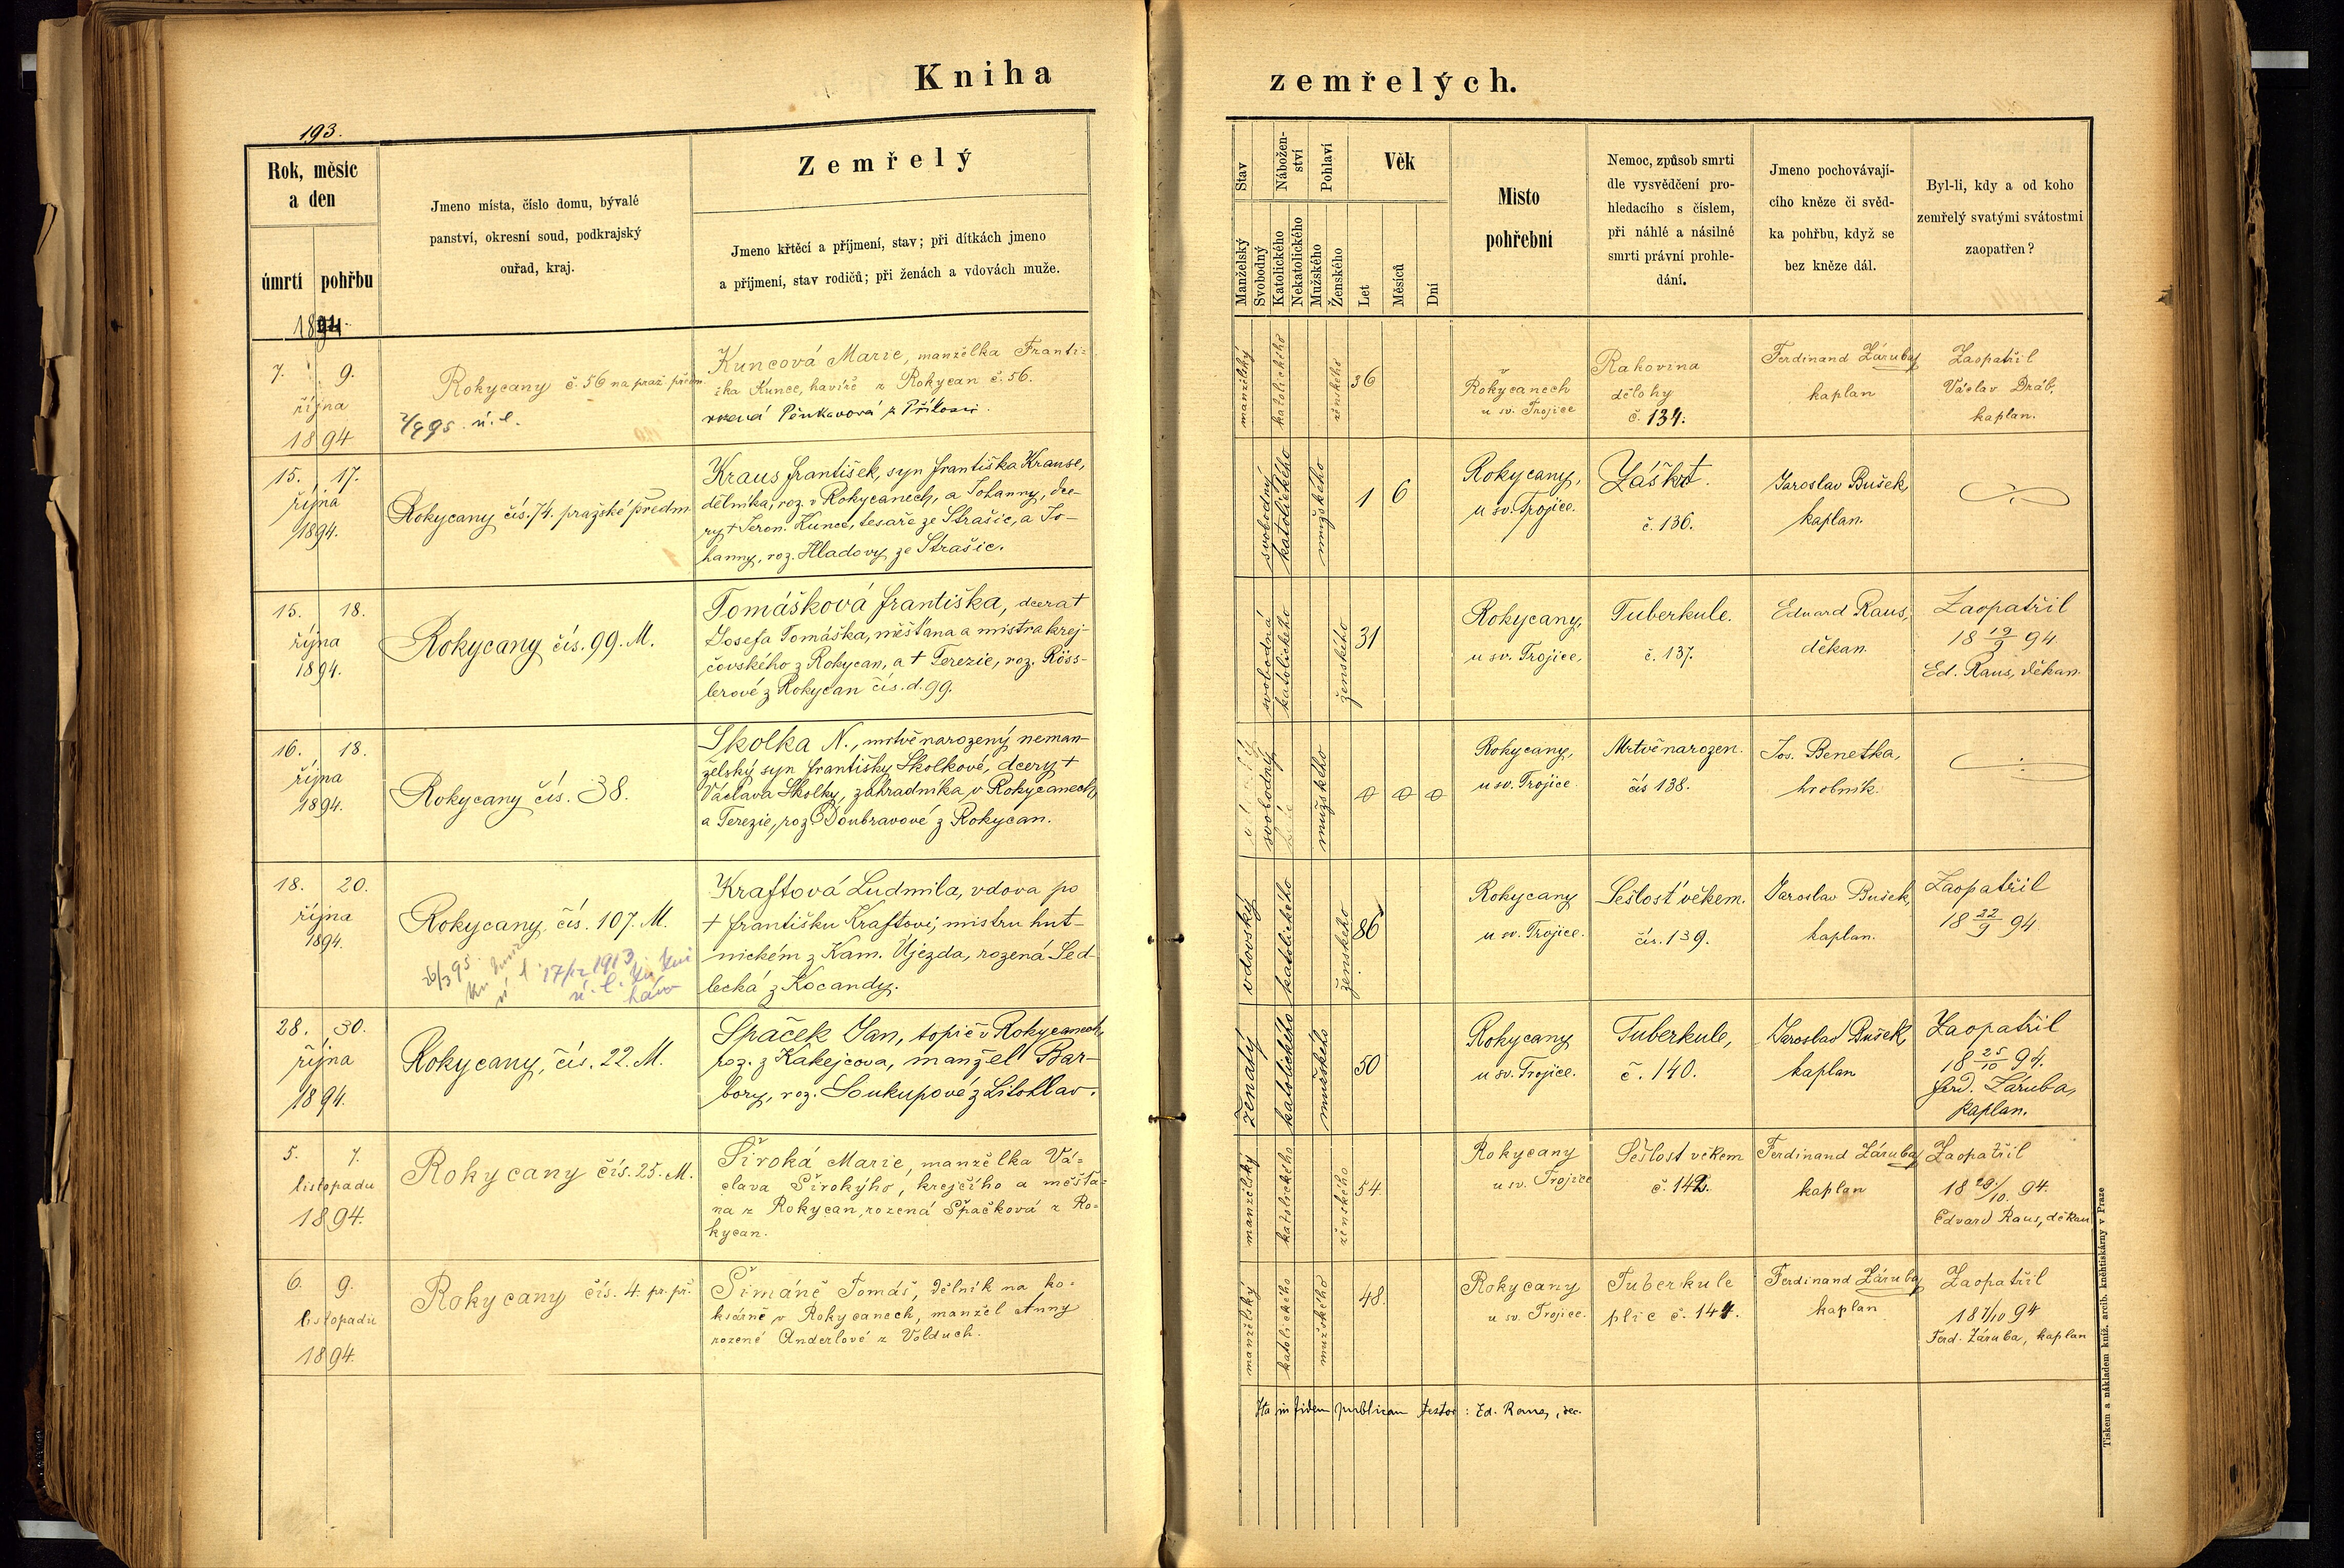 Kniha zemřelých.
193.
Rok, měsíc
a den
úmrtí pohřbu
1894.
Jmeno místa, číslo domu, bývalé
panství, okresní soud, podkrajský
ouřad, kraj.
Zemřelý
Jmeno křtěcí a příjmení, stav; při dítkách jmeno
a příjmení, stav rodičů; při ženách a vdovách muže.
Stav
Manželský
Svobodný
Nábožen-
ství
Katolického
Nekatolického
Pohlaví
Mužského
Ženského
Věk
Let
Měsíců
Dní
Místo
pohřební
Nemoc, způsob smrti
dle vysvědčení pro-
hledacího s číslem,
při náhlé a násilné
smrti právní prohle-
dání.
Jmeno pochovávají-
cího kněze či svěd-
ka pohřbu, když se
bez kněze dál.
Byl-li, kdy a od koho
zemřelý svatými svátostmi
zaopatřen?
7. 9.
října
1894
Rokycany č. 56 na praž. předm.
Kuncová Marie, manželka Franti=
ška Kunce, havíře z Rokycan č. 56.
manželský
katolického
ženského
36
v
Rokycanech
u sv. Trojice
Rakovina
dělohy
č. 134.
Ferdinand Záruba,
kaplan
Zaopatřil
Václav Dráb,
kaplan.
15. 17.
října
1894.
Rokycany čís. 74. pražské předm
Kraus František, syn Františka Krause,
dělníka, roz. v Rokycanech, a Johanny, dce-
ry † Jeron. Kunce, tesaře ze Strašic, a Jo-
hanny, roz. Hladovy ze Strašic.
svobodný
katolického
mužského
1 6
Rokycany,
u sv. Trojice.
Záškrt.
č. 136.
Jaroslav Bušek,
kaplan.
15. 18.
října
1894.
Rokycany čís. 99. M.
Tomášková Františka, dcera †
Josefa Tomáška, měšťana a mistra krej-
čovského z Rokycan, a † Terezie, roz. Röss-
lerové z Rokycan čís. d. 99.
svobodná
katolického
ženského
31
Rokycany,
u sv. Trojice,
Tuberkule.
č. 137.
Eduard Raus,
děkan.
Zaopatřil
18 19/9 94
Ed. Raus, děkan.
16. 18.
října
1894.
Rokycany čís. 38.
Skolka N., mrtvě narozený neman-
želský syn Františky Skolkové, dcery †
Václava Skolky, zahradníka v Rokycanech,
a Terezie, roz. Doubravové z Rokycan.
svobodný
mužského
0 0 0
Rokycany,
u sv. Trojice.
Mrtvě narozen.
čís 138.
Jos. Benetka,
hrobník.
18. 20.
října
1894.
Rokycany čís. 107. M.
26/3 95.
17/12 1913
Kraftová Ludmila, vdova po
† Františku Kraftovi, mistru hut-
nickém z Kam. Újezda, rozená Sed-
lecká z Kocandy.
vdovský
katolického
ženského
86
Rokycany
u sv. Trojice.
Sešlost věkem.
čís. 139.
Jaroslav Bušek,
kaplan.
Zaopatřil
18 22/9 94.
28. 30.
října
1894.
Rokycany, čís. 22. M.
Spaček Jan, topič v Rokycanech,
roz. z Kakejcova, manžel Bar-
bory, roz. Soukupové z Litohlav.
ženatý
katolického
mužského
50
Rokycany
u sv. Trojice.
Tuberkule,
č. 140.
Jaroslav Bušek,
kaplan
Zaopatřil
18 25/10 94.
Ferd. Záruba,
kaplan.
5. 7.
listopadu
1894.
Rokycany čís. 25. M.
Široká Marie, manželka Vá=
clava Širokýho, krejčího a měšťa=
na z Rokycan, rozená Špačková z Ro=
kycan.
manželský
katolického
ženského
54.
Rokycany
u sv. Trojice
Sešlost věkem
č. 142.
Ferdinand Záruba,
kaplan
Zaopatřil
18 28/10. 94.
Edvard Raus, děkan
6. 9.
listopadu
1894.
Rokycany čís. 4. pr. př.
Šimáně Tomáš, dělník na ko=
ksárně v Rokycanech, manžel Anny
rozené Anderlové z Volduch.
manželský
katolického
mužského
48.
Rokycany
u sv. Trojice.
Tuberkule
plic č. 144.
Ferdinand Záruba,
kaplan
Zaopatřil
18 7/10 94
Ferd. Záruba, kaplan
Ita in fidem publicam testor: Ed. Raus, dec.
Tiskem a nákladem kníž. arcib. knihtiskárny v Praze